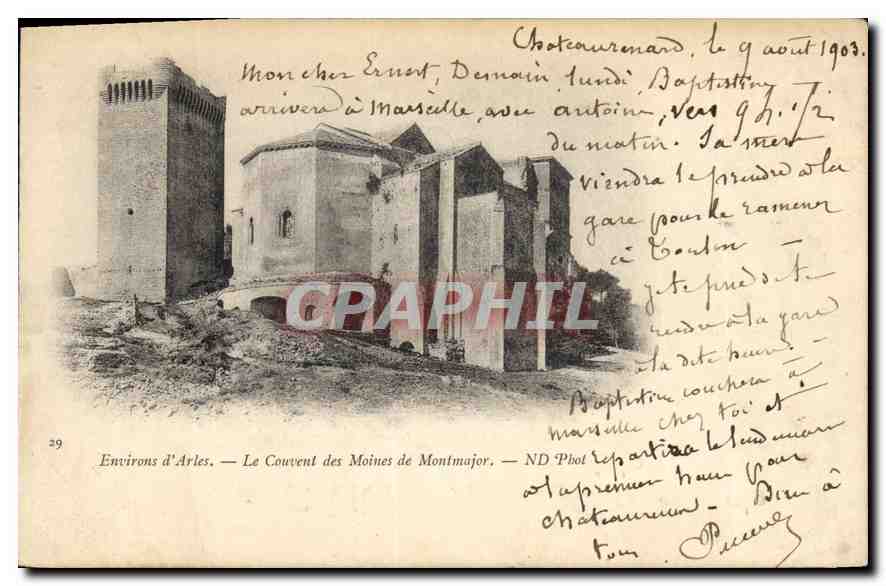 Chateaurenard, le 9 août 1903.
Mon cher Ernest, Demain lundi Baptistine
arrivera à Marseille, avec antoine, vers 9 h. 1/2
du matin. Sa mère
viendra le prendre à la
gare pour le ramener
à Toulon —
je te prie de te
rendre à la gare
à la dite heure. —
Baptistine couchera à
marseille chez toi et
repartira le lendemain
à la première heure pour
chateaurenard — Bien à
tous
CPARPHIL
29
Environs d'Arles. — Le Couvent des Moines de Montmajor. — ND Phot